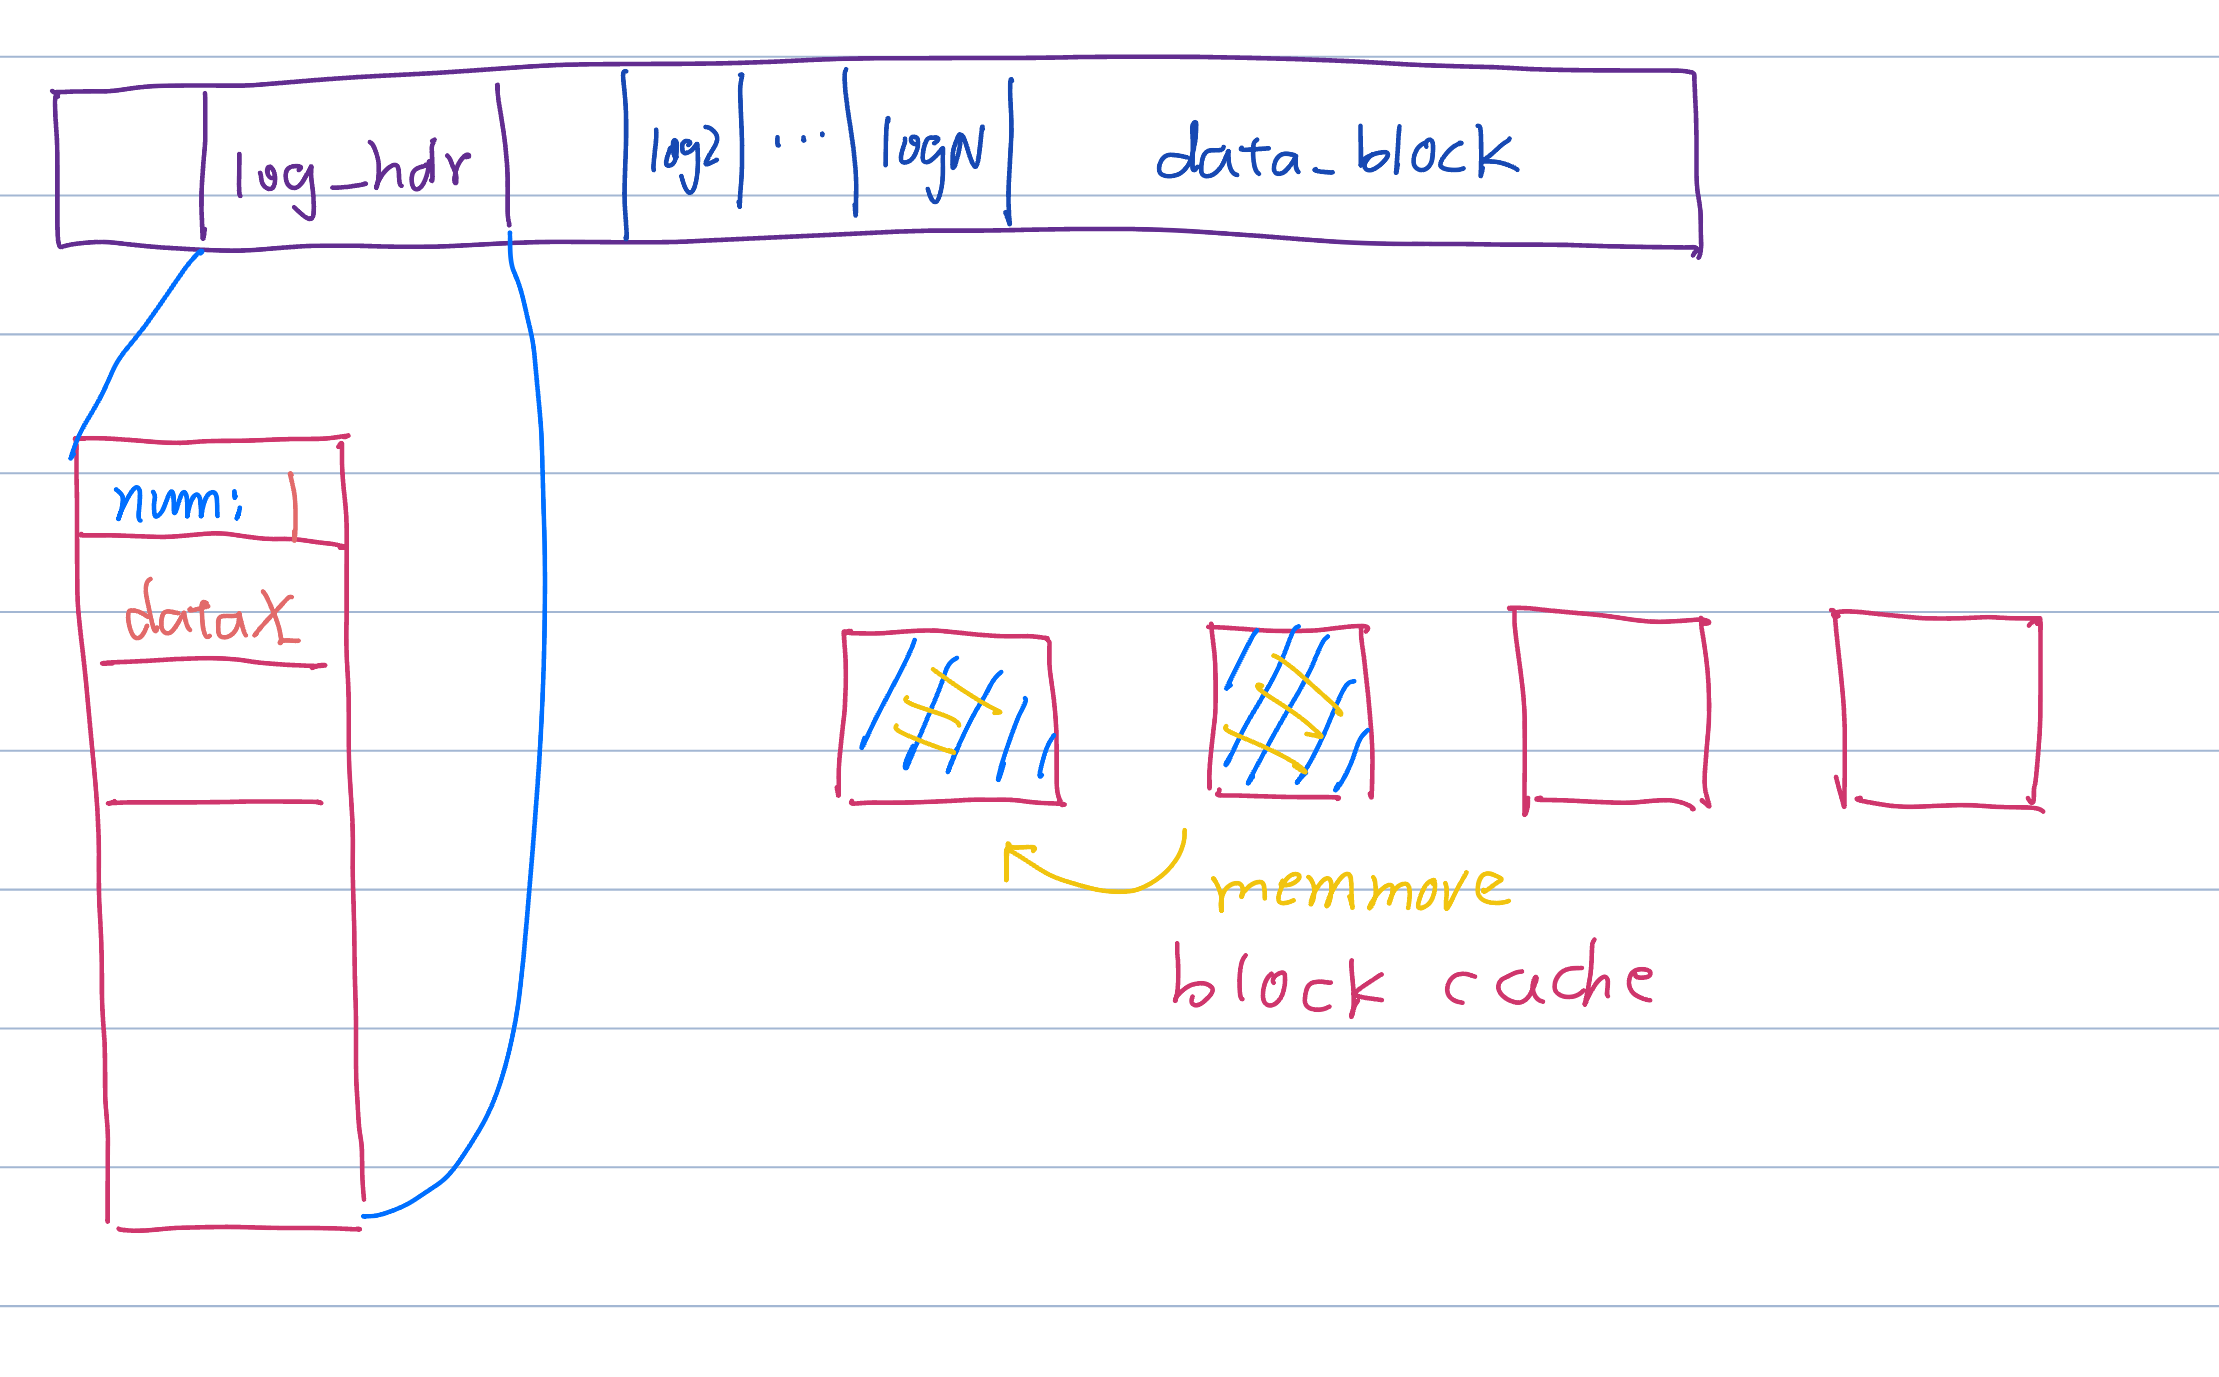 log_hdr log2 ... logN data_block
num: 1
dataX
memmove
block cache